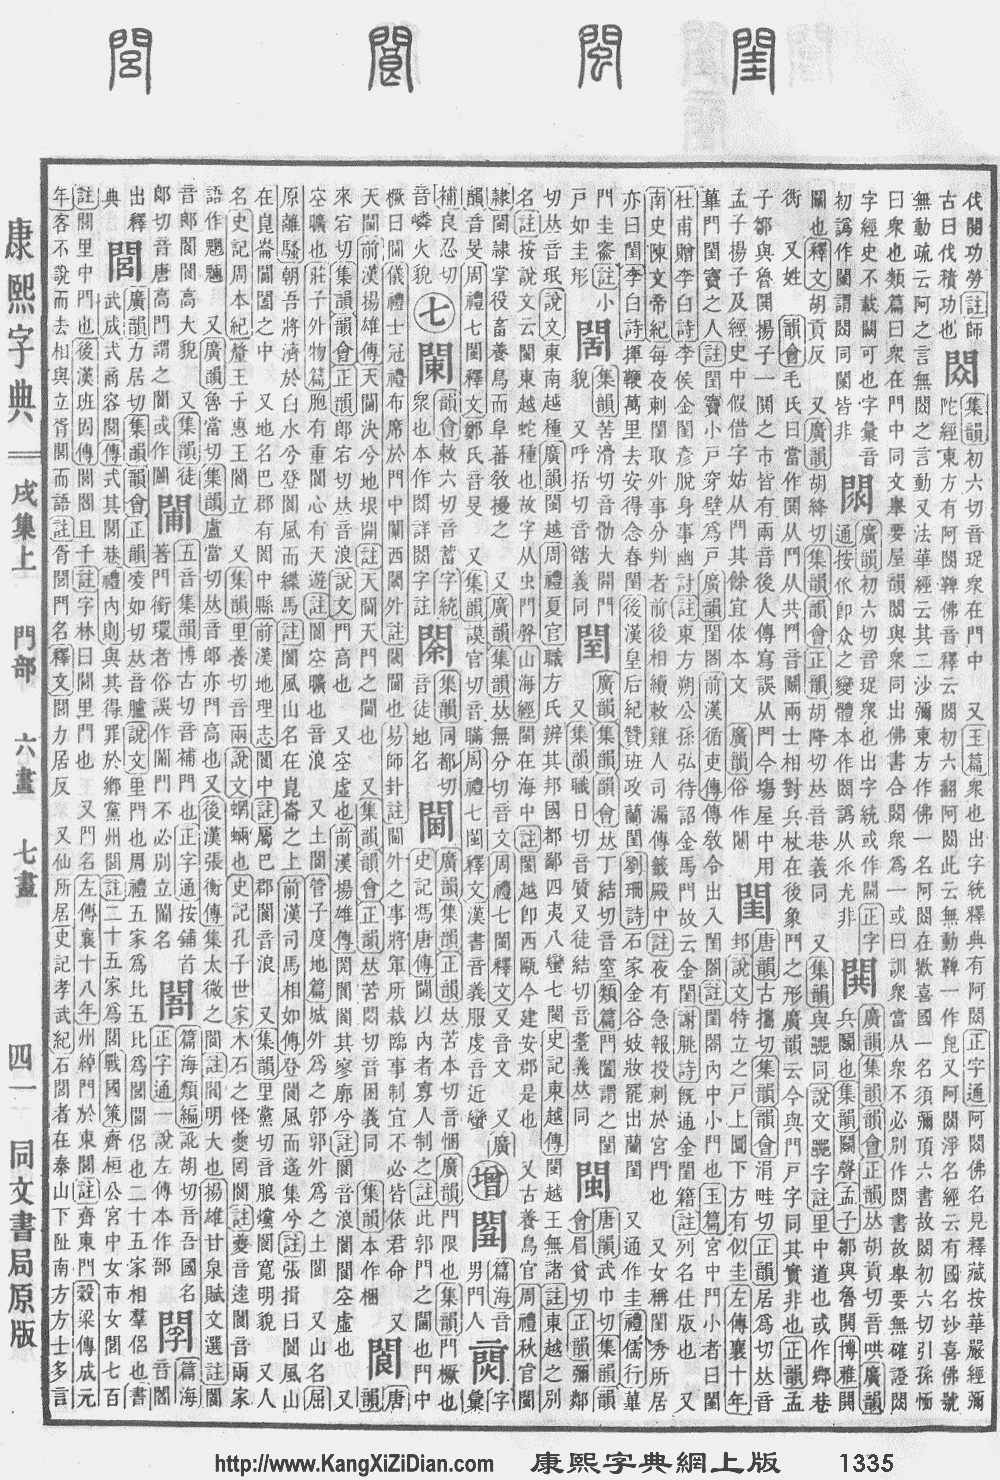 康熙字典
戌集上
門部
六畫
七畫
四一
同文書局原版
閨
閩
閬
閭
伐閱功勞註師
古曰伐積功也
閦
集韻初六切音珿衆在門中 又玉篇衆也出字統釋典有阿閦正字通阿閦佛名見釋藏按華嚴經彌
陀經東方有阿閦鞞佛音釋云閦初六翻阿閦此云無動鞞一作毘又阿閦淨名經云有國名妙喜佛號
無動疏云阿之言無閦之言動又法華經云其二沙彌東方作佛一名阿閦在歡喜國一名須彌頂六書故閦初六切引孫愐
曰衆也類篇曰衆在門中同文舉要屋韻閦與衆同出佛書合閦衆爲一或曰訓衆當从衆不必別作閦書故舉要無確證閦
字經史不載闕可也字彙音
廣韻初六切音珿衆也出字統或作
正字
通按㐺卽众之變體本作閦譌从
尤非
廣韻集韻韻會正韻𠀤胡貢切音哄廣韻
兵鬭也集韻鬭聲孟子鄒與魯鬨博雅鬨
鬭也釋文胡貢反 又廣韻胡絳切集韻韻會正韻胡降切𠀤音巷義同 又集韻與
同說文
字註里中道也或作鄉巷
衖 又姓 韻會毛氏曰當作鬨从鬥从共鬥音鬭兩士相對兵杖在後象鬥之形廣韻云今與門戶字同其實非也正韻孟
子鄒與魯鬨揚子一鬨之市皆有兩音後人傳寫誤从門今塲屋中用
孟子揚子及經史中假借字姑从門其餘宜依本文 廣韻俗作閧
閨
唐韻古攜切集韻韻會涓畦切正韻居爲切𠀤音
邽說文特立之戸上圜下方有似圭左傳襄十年
蓽門閨竇之人註閨竇小戸穿壁爲戸廣韻閨閤前漢循吏傳傳敎令出入閨閤註閨閤內中小門也玉篇宮中門小者曰閨
杜甫贈李白詩李侯金閨彥脫身事幽討註東方朔公孫弘待詔金馬門故云金閨謝朓詩旣通金閨籍註列名仕版也 又
南史陳文帝紀每夜刺閨取外事分判者前後相續敕雞人司漏傳籤殿中註夜有急報投刺於宮門也 又女稱閨秀所居
亦曰閨李白詩揮鞭萬里去安得念春閨後漢皇后紀贊班政蘭閨劉珊詩石家金谷妓妝罷出蘭閨 又通作圭禮儒行蓽
門圭窬註小
戸如圭形
閣
集韻苦滑切音骱大開門
貌 又呼括切音豁義同
閠
廣韻集韻韻會𠀤丁結切音窒類篇門闔謂之閠
又集韻職日切音質又徒結切音耋義𠀤同
閩
唐韻武巾切集韻韻
會眉貧切正韻彌鄰
切𠀤音珉說文東南越種廣韻閩越周禮夏官職方氏辨其邦國都鄙四夷八蠻七閩史記東越傳閩越王無諸註東越之別
名註按說文云閩東越蛇種也故字从虫門聲山海經閩在海中註閩越卽西甌今建安郡是也 又古養鳥官周禮秋官閩
隸閩隸掌役畜養鳥而阜蕃敎擾之 又廣韻集韻𠀤無分切音文周禮七閩釋文又音文 又廣
韻音旻周禮七閩釋文鄭氏音旻 又集韻謨官切音瞞周禮七閩釋文漢書音義服虔音近蠻
增
篇海音
男門人
字
彙
補良忍切
音嶙火貌
七
闌
韻會敕六切音蓄字統
衆也本作閦詳閦字註
集韻同都切
音徒地名
閫
廣韻集韻正韻𠀤苦本切音悃廣韻門限也集韻門橛也
史記馮唐傳閫以內者寡人制之註此郭門之閫也門中
橛曰閫儀禮士冠禮布席於門中闑西閾外註閾閫也易師卦註閫外之事將軍所裁臨事制宜不必皆依君命 又
天閫前漢揚雄傳天閫決兮地垠開註天閫天門之閫也 又集韻韻會正韻𠀤苦悶切音困義同 集韻本作梱
閬
唐
韻
來宕切集韻韻會正韻郎宕切𠀤音浪說文門高也 又空虛也前漢揚雄傳閌閬閬其寥廓兮註閬音浪閬閬空虛也 又
空曠也莊子外物篇胞有重閬心有天遊註閬空曠也音浪 又土閬管子度地篇城外爲之郭郭外爲之土閬 又山名屈
原離騷朝吾將濟於白水兮登閬風而緤馬註閬風山名在崑崙之上前漢司馬相如傳登閬風而遙集兮註張揖曰閬風山
在崑崙閶闔之中 又地名巴郡有閬中縣前漢地理志閬中註屬巴郡閬音浪 又集韻里黨切音朖爣閬寬明貌 又人
名史記周本紀釐王子惠王閬立 又集韻里養切音兩說文蜽蛧也史記孔子世家木石之怪夔罔閬註夔音逵閬音兩家
語作魍魎 又廣韻魯當切集韻盧當切𠀤音郎亦門高也又後漢張衡傳集太微之閬閬註閬明大也揚雄甘泉賦文選註閬
音郎閬閬高大貌 又集韻徒
郎切音唐高門謂之閬或作闣
五音集韻博古切音補門也正字通按鋪首
著門銜環者俗誤作門不必別立闢名
篇海類編訛胡切音吾吾國名
正字通一說左傳本作郚
篇海
音閣
出釋
典
閭
廣韻力居切集韻韻會正韻凌如切𠀤音臚說文里門也周禮五家爲比五比爲閭閭侶也二十五家相羣侶也書
武成式商容閭傳式其閭巷禮內則與其得罪於鄉黨州閭註二十五家爲閭戰國策齊桓公宮中女市女閭七百
註閭里中門也後漢班固傳閭閻且千註字林曰閭里門也 又門名左傳襄十八年州綽門於東閭註齊東門穀梁傳成元
年客不說而去相與立胥閭而語註胥閭門名釋文閭力居反 又仙所居史記孝武紀石閭者在泰山下阯南方方士多言
http://www.KangXiZiDian.com 康熙字典網上版 1335